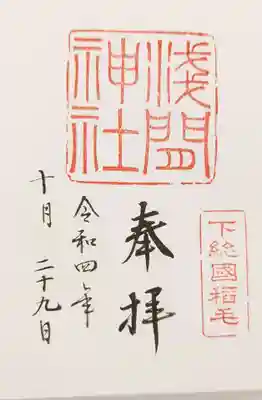 下総國稲毛
奉拝
淺間
神社
令和四年
十月二十九日